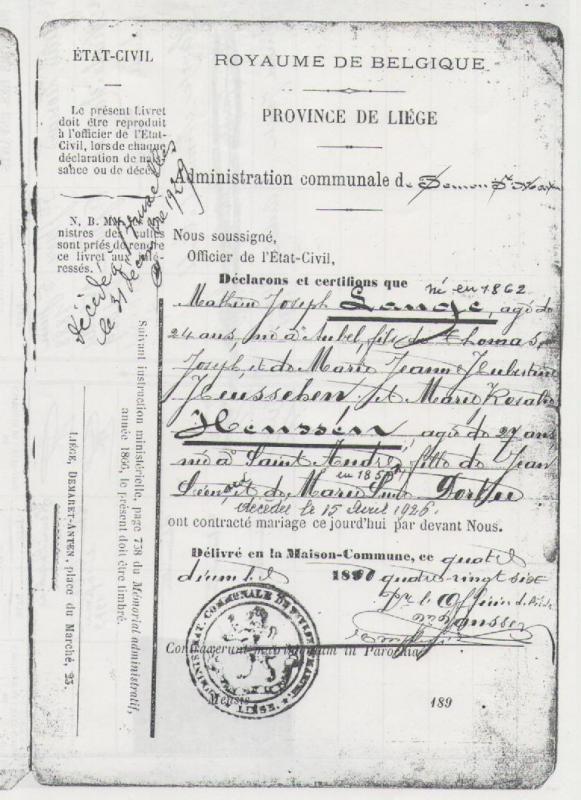 ÉTAT-CIVIL
Le présent Livret
doit être reproduit
à l'officier de l'Etat-
Civil, lors de chaque
déclaration de nais-
sance ou de décès.
N. B. MM. les mi-
nistres des cultes
sont priés de rendre
ce livret aux inté-
ressés.
décédé à Bruxelles
le 31 décembre 1929
Suivant instruction ministérielle, page 738 du Mémorial administratif,
année 1866, le présent doit être timbré.
LIÉGE, DEMARET-ANTEN, place du Marché, 25.
ROYAUME DE BELGIQUE
PROVINCE DE LIÉGE
Administration communale de
Nous soussigné,
Officier de l'État-Civil,
Déclarons et certifions que
né en 1862
Mathieu Joseph Lange, agé de
24 ans, né à Aubel, fils de Thomas
Joseph, et de Marie Jeanne Hubertine
Heusschen, et Marie Rosalie
Heussen, agée de 27 ans,
née à Saint André, fille de Jean
en 1859
et de Marie
décédée le 15 Avril 1926.
ont contracté mariage ce jourd'hui par devant Nous.
Délivré en la Maison-Commune, ce quatre
18 quatre-vingt six
Pr l'Officier
Contraxerunt matrimonium in Parochia
Mensis 189
ADMINISTRAT. COMMUNALE DE
LIÉGE.